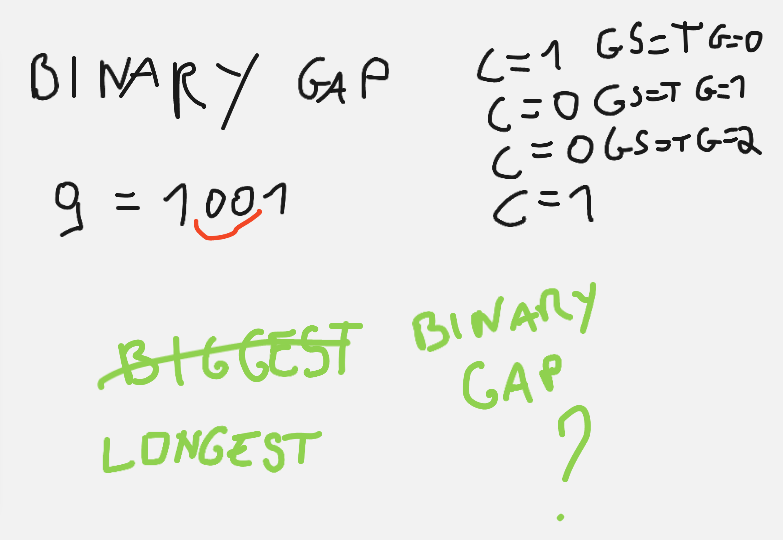 BINARY GAP
C=1 GS=T G=0
C=0 GS=T G=1
C=0 GS=T G=2
C=1
9 = 1001
BIGGEST BINARY
LONGEST GAP
?